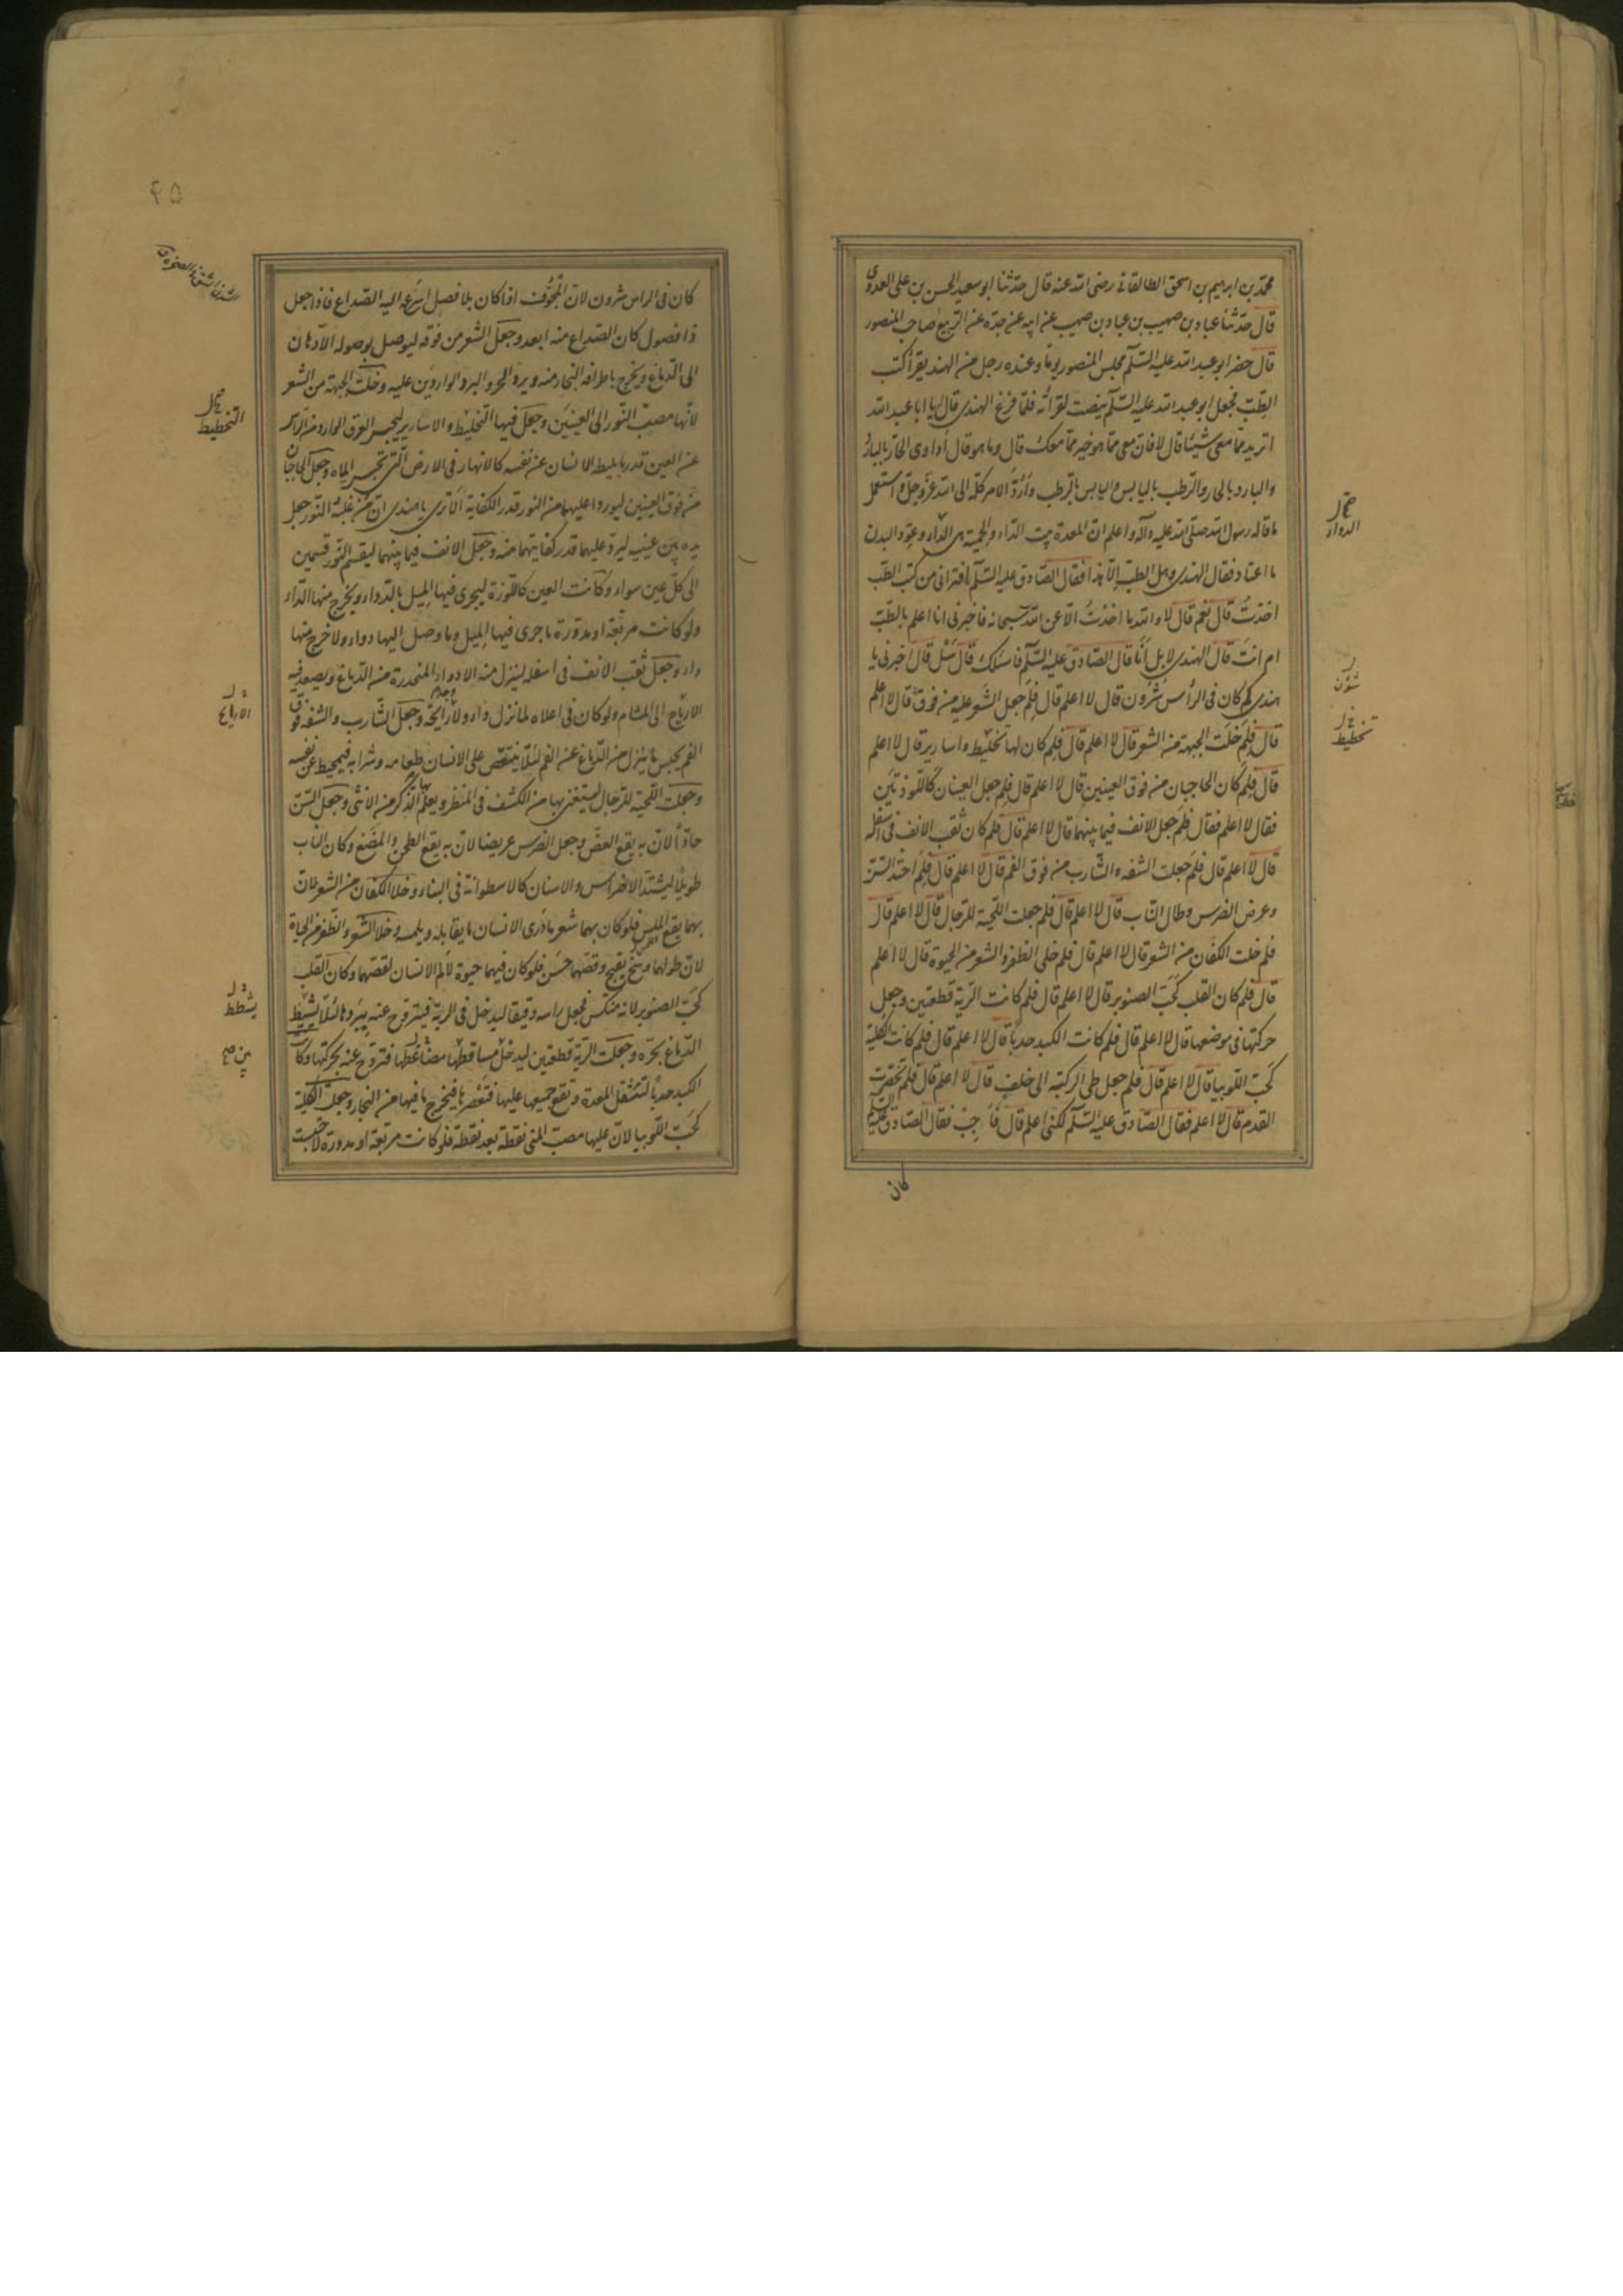 محمّد بن ابراهيم بن اسحق الطالقانى رضى الله عنه قال حدّثنا ابو سعيد الحسن بن على العدوى
قال حدّثنا عباد بن صهيب بن عباد بن صهيب عن ابيه عن جدّه عن الربيع صاحب المنصور
قال حضر ابو عبد الله عليه السّلم مجلس المنصور يوما وعنده رجل من الهند يقرأ كتب
الطّب فجعل ابو عبد الله عليه السّلم ينصت لقرائته فلمّا فرغ الهندى قال يا ابا عبد الله
اتريد ممّا معى شيئا قال لا فان معى ممّا هو خير ممّا معك قال وما هو قال أداوى الحارّ بالبارد
والبارد بالحار والرّطب باليابس واليابس بالرّطب وأردّ الامر كلّه الى الله عزّ وجلّ واستعمل
ما قاله رسول الله صلّى الله عليه وآله واعلم انّ المعدة بيت الدّاء والحمية هى الدّواء وعوّد البدن
ما اعتاد فقال الهندى وهل الطبّ الّا هذا فقال الصّادق عليه السّلم افترانى من كتب الطّب
اخذتُ قال نعم قال لا والله ما اخذتُ الّا عن الله سبحانه فاخبرنى انا اعلم بالطّب
ام انت قال الهندى لا بل أنا قال الصّادق عليه السّلم فاسئلك قال سَل قال اخبرنى يا
هندى لم كان فى الرأس شئون قال لا اعلم قال فلِمَ جعل الشّعر عليه من فوق قال لا اعلم
قال فلِمَ خلت الجبهة من الشعر قال لا اعلم قال فلم كان لها تخليط واسارير قال لا اعلم
قال فلِمَ كان الحاجبان من فوق العينين قال لا اعلم قال فلِمَ جعل العينان كاللّوزتين
فقال لا اعلم فقال فلِمَ جعل الانف فيما بينهما قال لا اعلم قال فلم كان ثقب الانف فى اسفله
قال لا اعلم قال فلِمَ جعلت الشفه والشّارب من فوق الفم قال لا اعلم قال فلِمَ احتدّ السّنّ
وعرض الضرس وطال النّاب قال لا اعلم قال فلم جعلت اللّحية للرّجال قال لا اعلم قال
فلم خلت الكفّان من الشعر قال لا اعلم قال فلم خلى الظفر والشعر من الحيوة قال لا اعلم
قال فلم كان القلب كحبّ الصنوبر قال لا اعلم قال فلم كانت الرّية قطعتين وجعل
حركتها فى موضعها قال لا اعلم قال فلم كانت الكبد حدباء قال لا اعلم قال فلم كانت الكلية
كحبّ اللّوبيا قال لا اعلم قال فلم جعل طى الركبة الى خلف قال لا اعلم قال فلم تخصّرت
القدم قال لا اعلم فقال الصّادق عليه السّلم لكنّى اعلم قال فأجِب فقال الصّادق عليه السّلم
كان
الدواء
شئون
تخطيط
۴۵
كان فى الراس شئون لانّ المجوّف اذا كان بلا فصل اسرع اليه الصّداع فاذا جعل
ذا فصول كان الصّداع منه ابعد وجعل الشعر من فوقه ليوصل بوصوله الادهان
الى الدّماغ ويخرج باطرافه البخار منه ويردّ الحرّ والبرد الواردين عليه وخلت الجبهة من الشعر
لانّها مصبّ النّور الى العينين وجعل فيها التّخليط والاسارير ليحبس العرق الوارد من الرّاس
عن العين قدر ما يميطه الانسان عن نفسه كالانهار فى الارض الّتى تحبس المياه وجعل الحاجبان
من فوق العينين ليوردا عليهما من النور قدر الكفاية ألا ترى يا هندى انّ من غلبه النّور جعل
يده بين عينيه ليردّ عليهما قدر كفايتهما منه وجعل الانف فيما بينهما ليقسم النّور قسمين
الى كلّ عين سواء وكانت العين كاللّوزة ليجرى فيها الميل بالدّواء ويخرج منها الدّاء
ولو كانت مربّعة او مدوّرة ما جرى فيها الميل وما وصل اليها دواء ولا خرج منها
داء وجعل ثقب الانف فى اسفله لينزل منه الادواء المنحدرة من الدّماغ ويصعد فيه
الارياح الى المشام ولو كان فى اعلاه لما نزل داء ولا وجد رائحة وجعل الشّارب والشفه فوق
الفم يحبس ما ينزل من الدّماغ عن الفم لئلّا يتنغّص على الانسان طعامه وشرابه فيميطه عن نفسه
وجعلت اللّحية للرّجال ليستغنى بها من الكشف فى المنظر ويعلم بها الذّكر من الانثى وجعل السّنّ
حادّاً لانّ به يقع العضّ وجعل الضرس عريضا لانّ به يقع الطحن والمضغ وكان النّاب
طويلًا ليشتدّ الاضراس والاسنان كالاسطوانة فى البناء وخلا الكفّان من الشعر لانّ
بهما يقع اللّمس فلو كان بهما شعر ما درى الانسان ما يقابله ويلمسه وخلا الشعر والظفر من الحياة
لانّ طولهما وسخ يقبح وقصّهما حسن فلو كان فيهما حيوة لألم الانسان لقصّهما وكان القلب
كحبّ الصنوبر لانه منكّس فجعل راسه دقيقا ليدخل فى الرية فيتروّح عنه ببردها لئلّا يشيط
الدّماغ بحرّه وجعلت الرّية قطعتين ليدخل بين مضاغطها فتروّح عنه بحركتها وكان
الكبد حدباء لتثقل المعدة وتقع جميعها عليها فتعصرها فيخرج ما فيها من البخار وجعلت الكلية
كحبّ اللّوبيا لانّ عليها مصبّ المنى نقطة بعد نقطة فلو كانت مربّعة او مدوّرة لاحتبست
التخطيط
الارياح
يشطط
بين صح